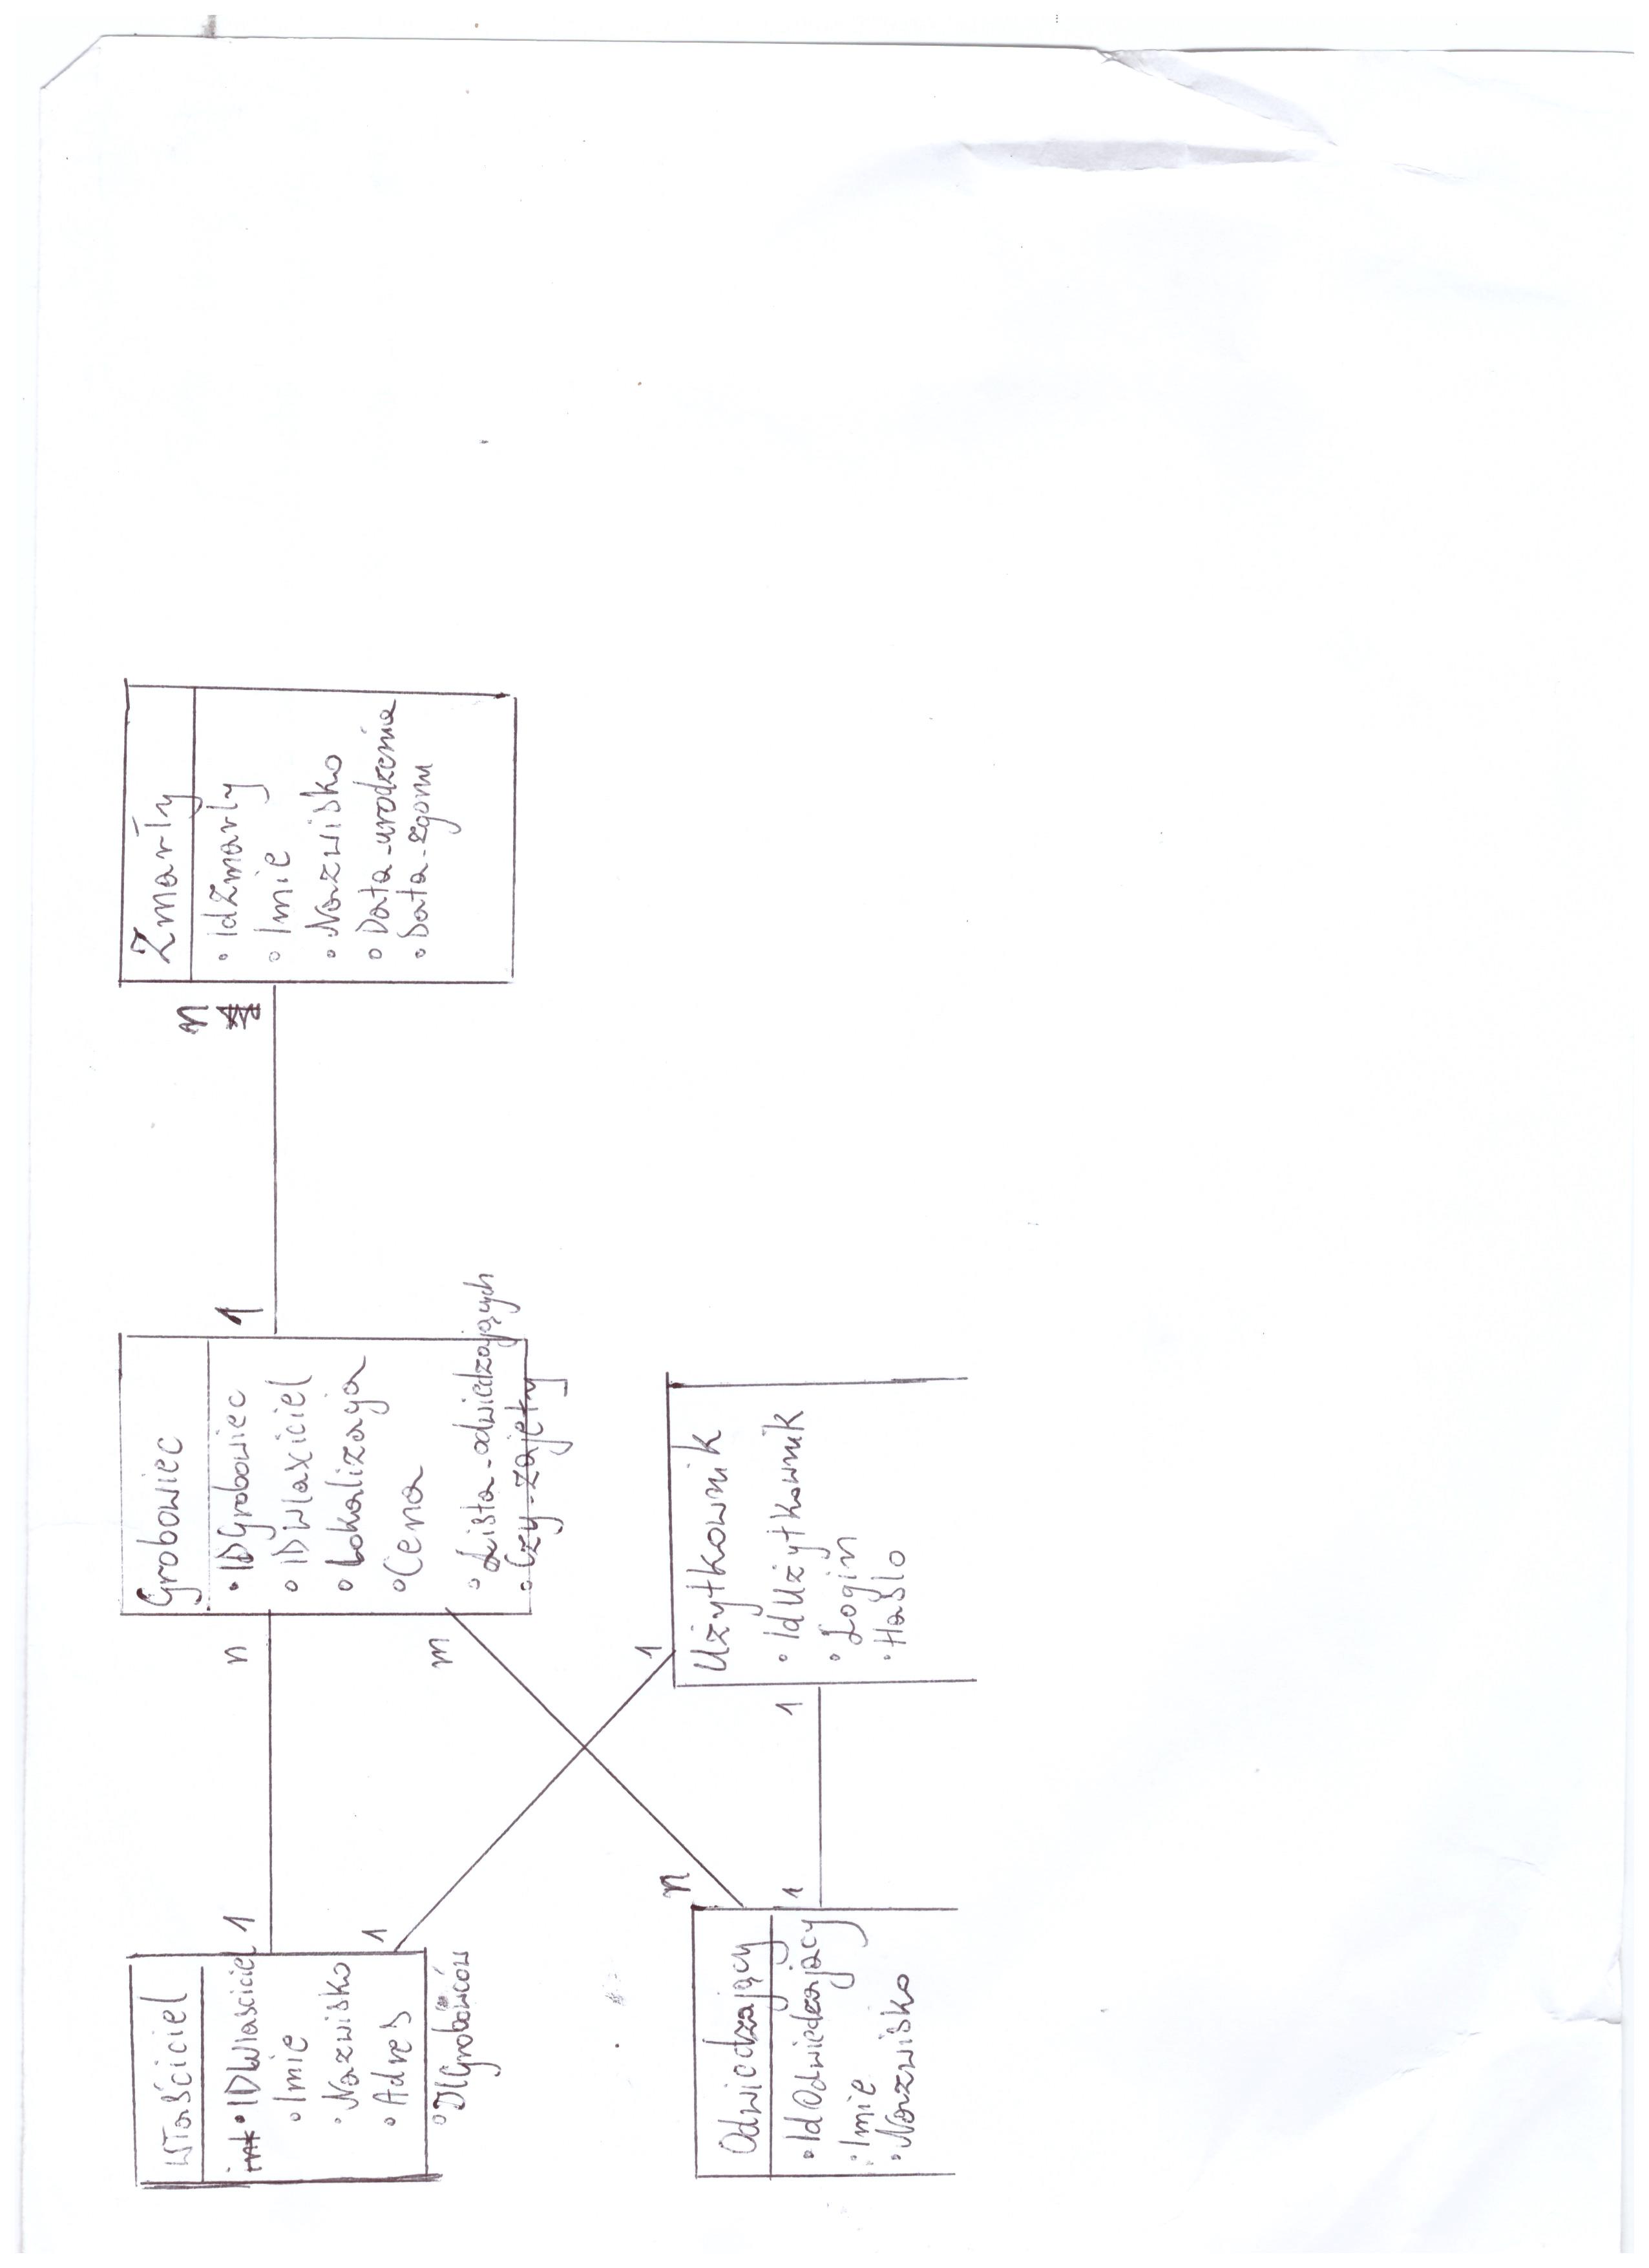 Właściciel
int • IDWlasciciel
• Imie
• Nazwisko
• Adres
• IlGrobowców
1
n
1
Grobowiec
• IDGrobowiec
• IDWlasciciel
• Lokalizacja
• Cena
• Lista_odwiedzających
• Czy_zajęty
m
1
n
Zmarły
• IdZmarly
• Imie
• Nazwisko
• Data_urodzenia
• Data_zgonu
n
Odwiedzający
• IdOdwiedzający
• Imie
• Nazwisko
1
1
1
Użytkownik
• IdUżytkownik
• Login
• Haslo